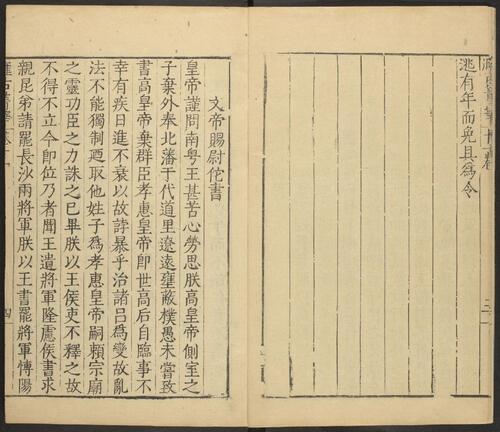 逃有年而免且為令
文帝賜尉佗書
皇帝謹問南粵王甚苦心勞思朕高皇帝側室之
子棄外奉北藩于代道里遼遠壅蔽樸愚未嘗致
書高皇帝棄群臣孝惠皇帝即世高后自臨事不
幸有疾日進不衰以故誖暴乎治諸呂為變故亂
法不能獨制迺取他姓子為孝惠皇帝嗣賴宗廟
之靈功臣之力誅之已畢朕以王侯吏不釋之故
不得不立今即位乃者聞王遺將軍隆慮侯書求
親昆弟請罷長沙兩將軍朕以王書罷將軍博陽
四